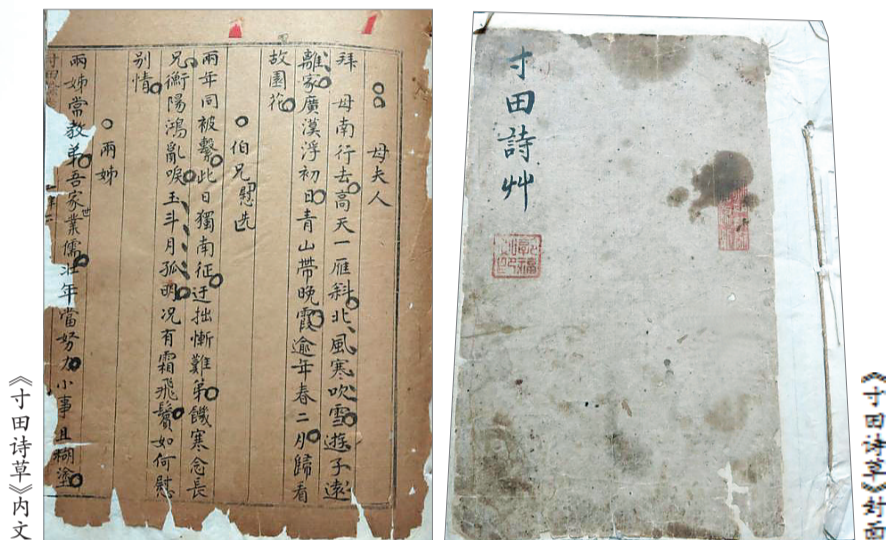 《寸田诗草》封面
寸田詩艸
母夫人
拜 母南行去高天一雁斜北風寒吹雪遊子遠
離家廣漢浮初日青山帶晚霞逾年春二月歸看
故園花
伯兄
兩年同被繫此日獨南征迂拙慚難弟饑寒念長
兄衡陽鴻亂唳玉斗月孤明况有霜飛鬢如何慰
别情
兩姊
兩姊常教弟吾家世業儒壯年當努力小事且糊塗
《寸田诗草》内文